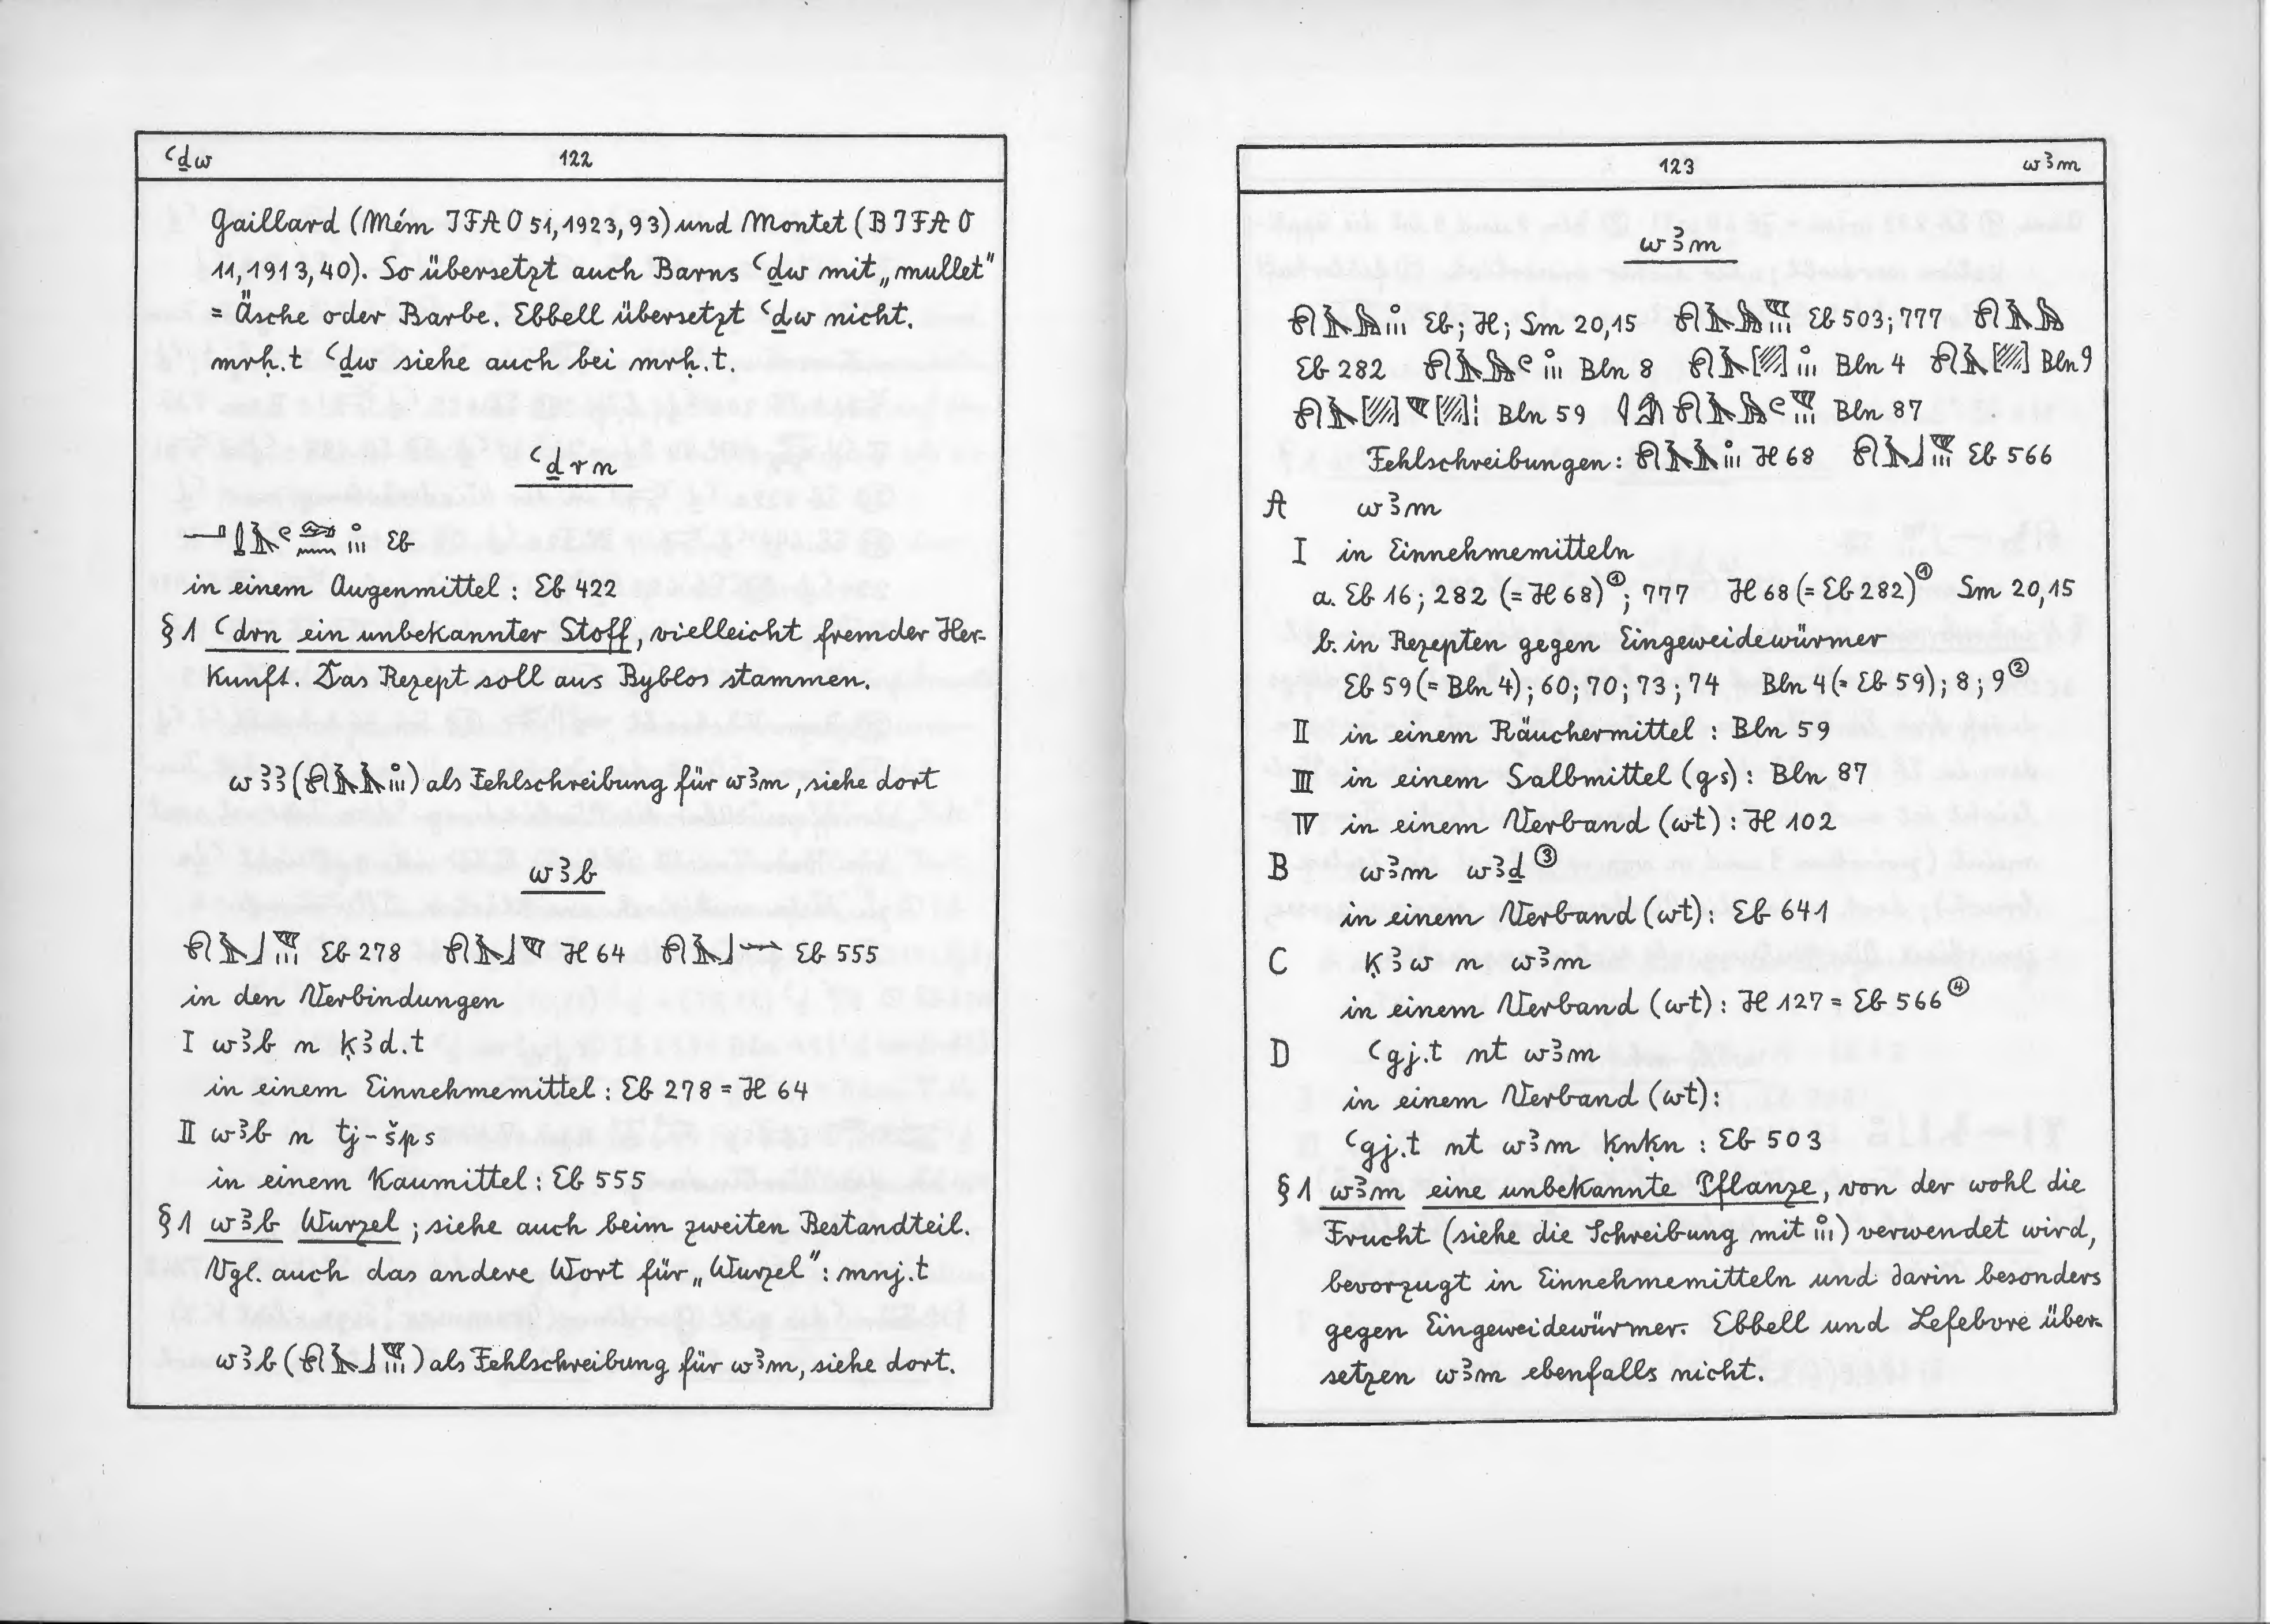 ꜥḏw 122
Gaillard (Mém IFAO 51,1923,93) und Montet (BIFAO
11,1913,40). So übersetzt auch Barns ꜥḏw mit „mullet“
= Äsche oder Barbe. Ebbell übersetzt ꜥḏw nicht.
mrḥ.t ꜥḏw siehe auch bei mrḥ.t.
ꜥḏrn
Eb
in einem Augenmittel : Eb 422
§ 1 ꜥdrn ein unbekannter Stoff, vielleicht fremder Her-
kunft. Das Rezept soll aus Byblos stammen.
wꜣꜣ ( ) als Fehlschreibung für wꜣm, siehe dort
wꜣb
Eb 278 H 64 Eb 555
in den Verbindungen
I wꜣb n ḳꜣd.t
in einem Einnehmemittel : Eb 278 = H 64
II wꜣb n tj-šps
in einem Kaumittel : Eb 555
§ 1 wꜣb Wurzel ; siehe auch beim zweiten Bestandteil.
Vgl. auch das andere Wort für „Wurzel“ : mnj.t
wꜣb ( ) als Fehlschreibung für wꜣm, siehe dort.
123 wꜣm
wꜣm
Eb ; H ; Sm 20,15 Eb 503 ; 777
Eb 282 Bln 8 Bln 4 Bln 9
Bln 59 Bln 87
Fehlschreibungen : H 68 Eb 566
A wꜣm
I in Einnehmemitteln
a. Eb 16 ; 282 (= H 68)① ; 777 H 68 (= Eb 282)① Sm 20,15
b. in Rezepten gegen Eingeweidewürmer
Eb 59 (= Bln 4) ; 60 ; 70 ; 73 ; 74 Bln 4 (= Eb 59) ; 8 ; 9②
II in einem Räuchermittel : Bln 59
III in einem Salbmittel (gs) : Bln 87
IV in einem Verband (wt) : H 102
B wꜣm wꜣḏ③
in einem Verband (wt) : Eb 641
C ḳꜣw n wꜣm
in einem Verband (wt) : H 127 = Eb 566④
D ꜥgj.t nt wꜣm
in einem Verband (wt) :
ꜥgj.t nt wꜣm ḳnḳn : Eb 503
§ 1 wꜣm eine unbekannte Pflanze, von der wohl die
Frucht (siehe die Schreibung mit ) verwendet wird,
bevorzugt in Einnehmemitteln und darin besonders
gegen Eingeweidewürmer. Ebbell und Lefebvre über-
setzen wꜣm ebenfalls nicht.